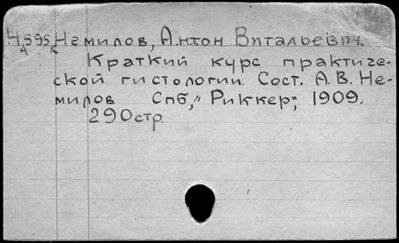 Немилов, Антон Витальевич.
Краткий курс практиче-
ской гистологии. Сост. А.В. Не-
милов Спб, „Риккер", 1909.
290стр.